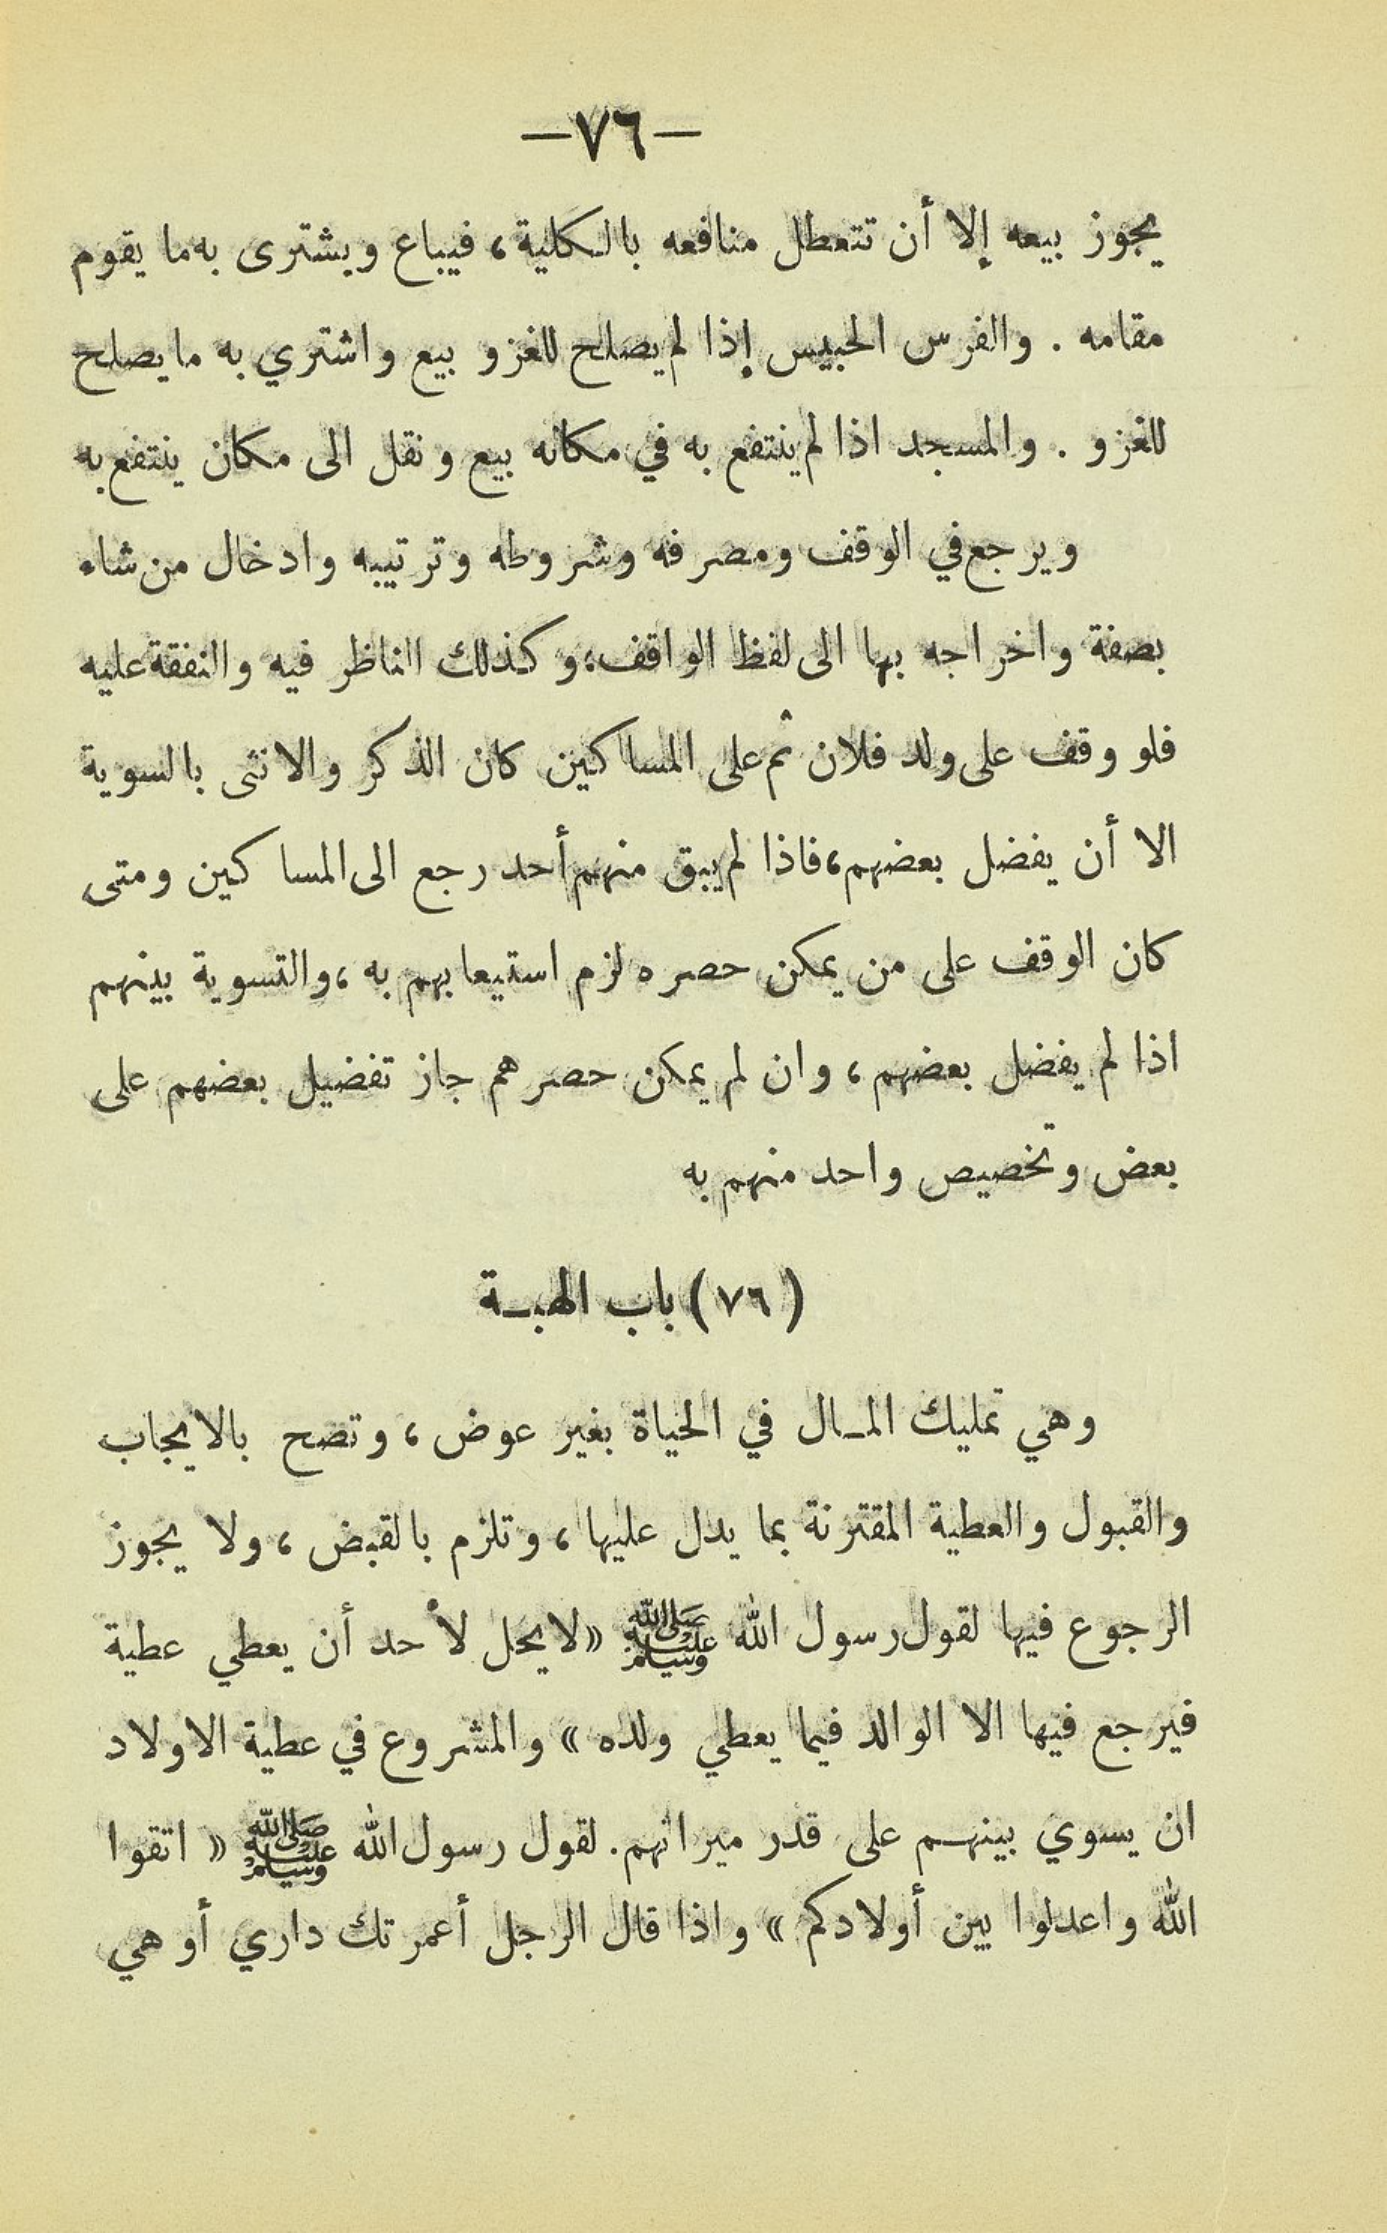 —٧٦—
يجوز بيعه إلا أن تتعطل منافعه بالكلية، فيباع ويشترى به ما يقوم
مقامه . والفرس الحبيس إذا لم يصلح للغزو بيع واشتري به ما يصلح
للغزو . والمسجد اذا لم ينتفع به في مكانه بيع ونقل الى مكان ينتفع به
ويرجع في الوقف ومصرفه وشروطه وترتيبه وادخال من شاء
بصفة واخراجه بها الى لفظ الواقف، وكذلك الناظر فيه والنفقة عليه
فلو وقف على ولد فلان ثم على المساكين كان الذكر والانثى بالسوية
الا أن يفضل بعضهم، فاذا لم يبق منهم أحد رجع الى المساكين ومتى
كان الوقف على من يمكن حصره لزم استيعابهم به، والتسوية بينهم
اذا لم يفضل بعضهم، وان لم يمكن حصرهم جاز تفضيل بعضهم على
بعض وتخصيص واحد منهم به
(٧٦) باب الهبـة
وهي تمليك المـال في الحياة بغير عوض، وتصح بالايجاب
والقبول والعطية المقترنة بما يدل عليها، وتلزم بالقبض، ولا يجوز
الرجوع فيها لقول رسول الله ﷺ «لا يحل لأحد أن يعطي عطية
فيرجع فيها الا الوالد فيما يعطي ولده» والمشروع في عطية الاولاد
ان يسوي بينهـم على قدر ميراثهم. لقول رسول الله ﷺ « اتقوا
الله واعدلوا بين أولادكم» واذا قال الرجل أعمرتك داري أو هي